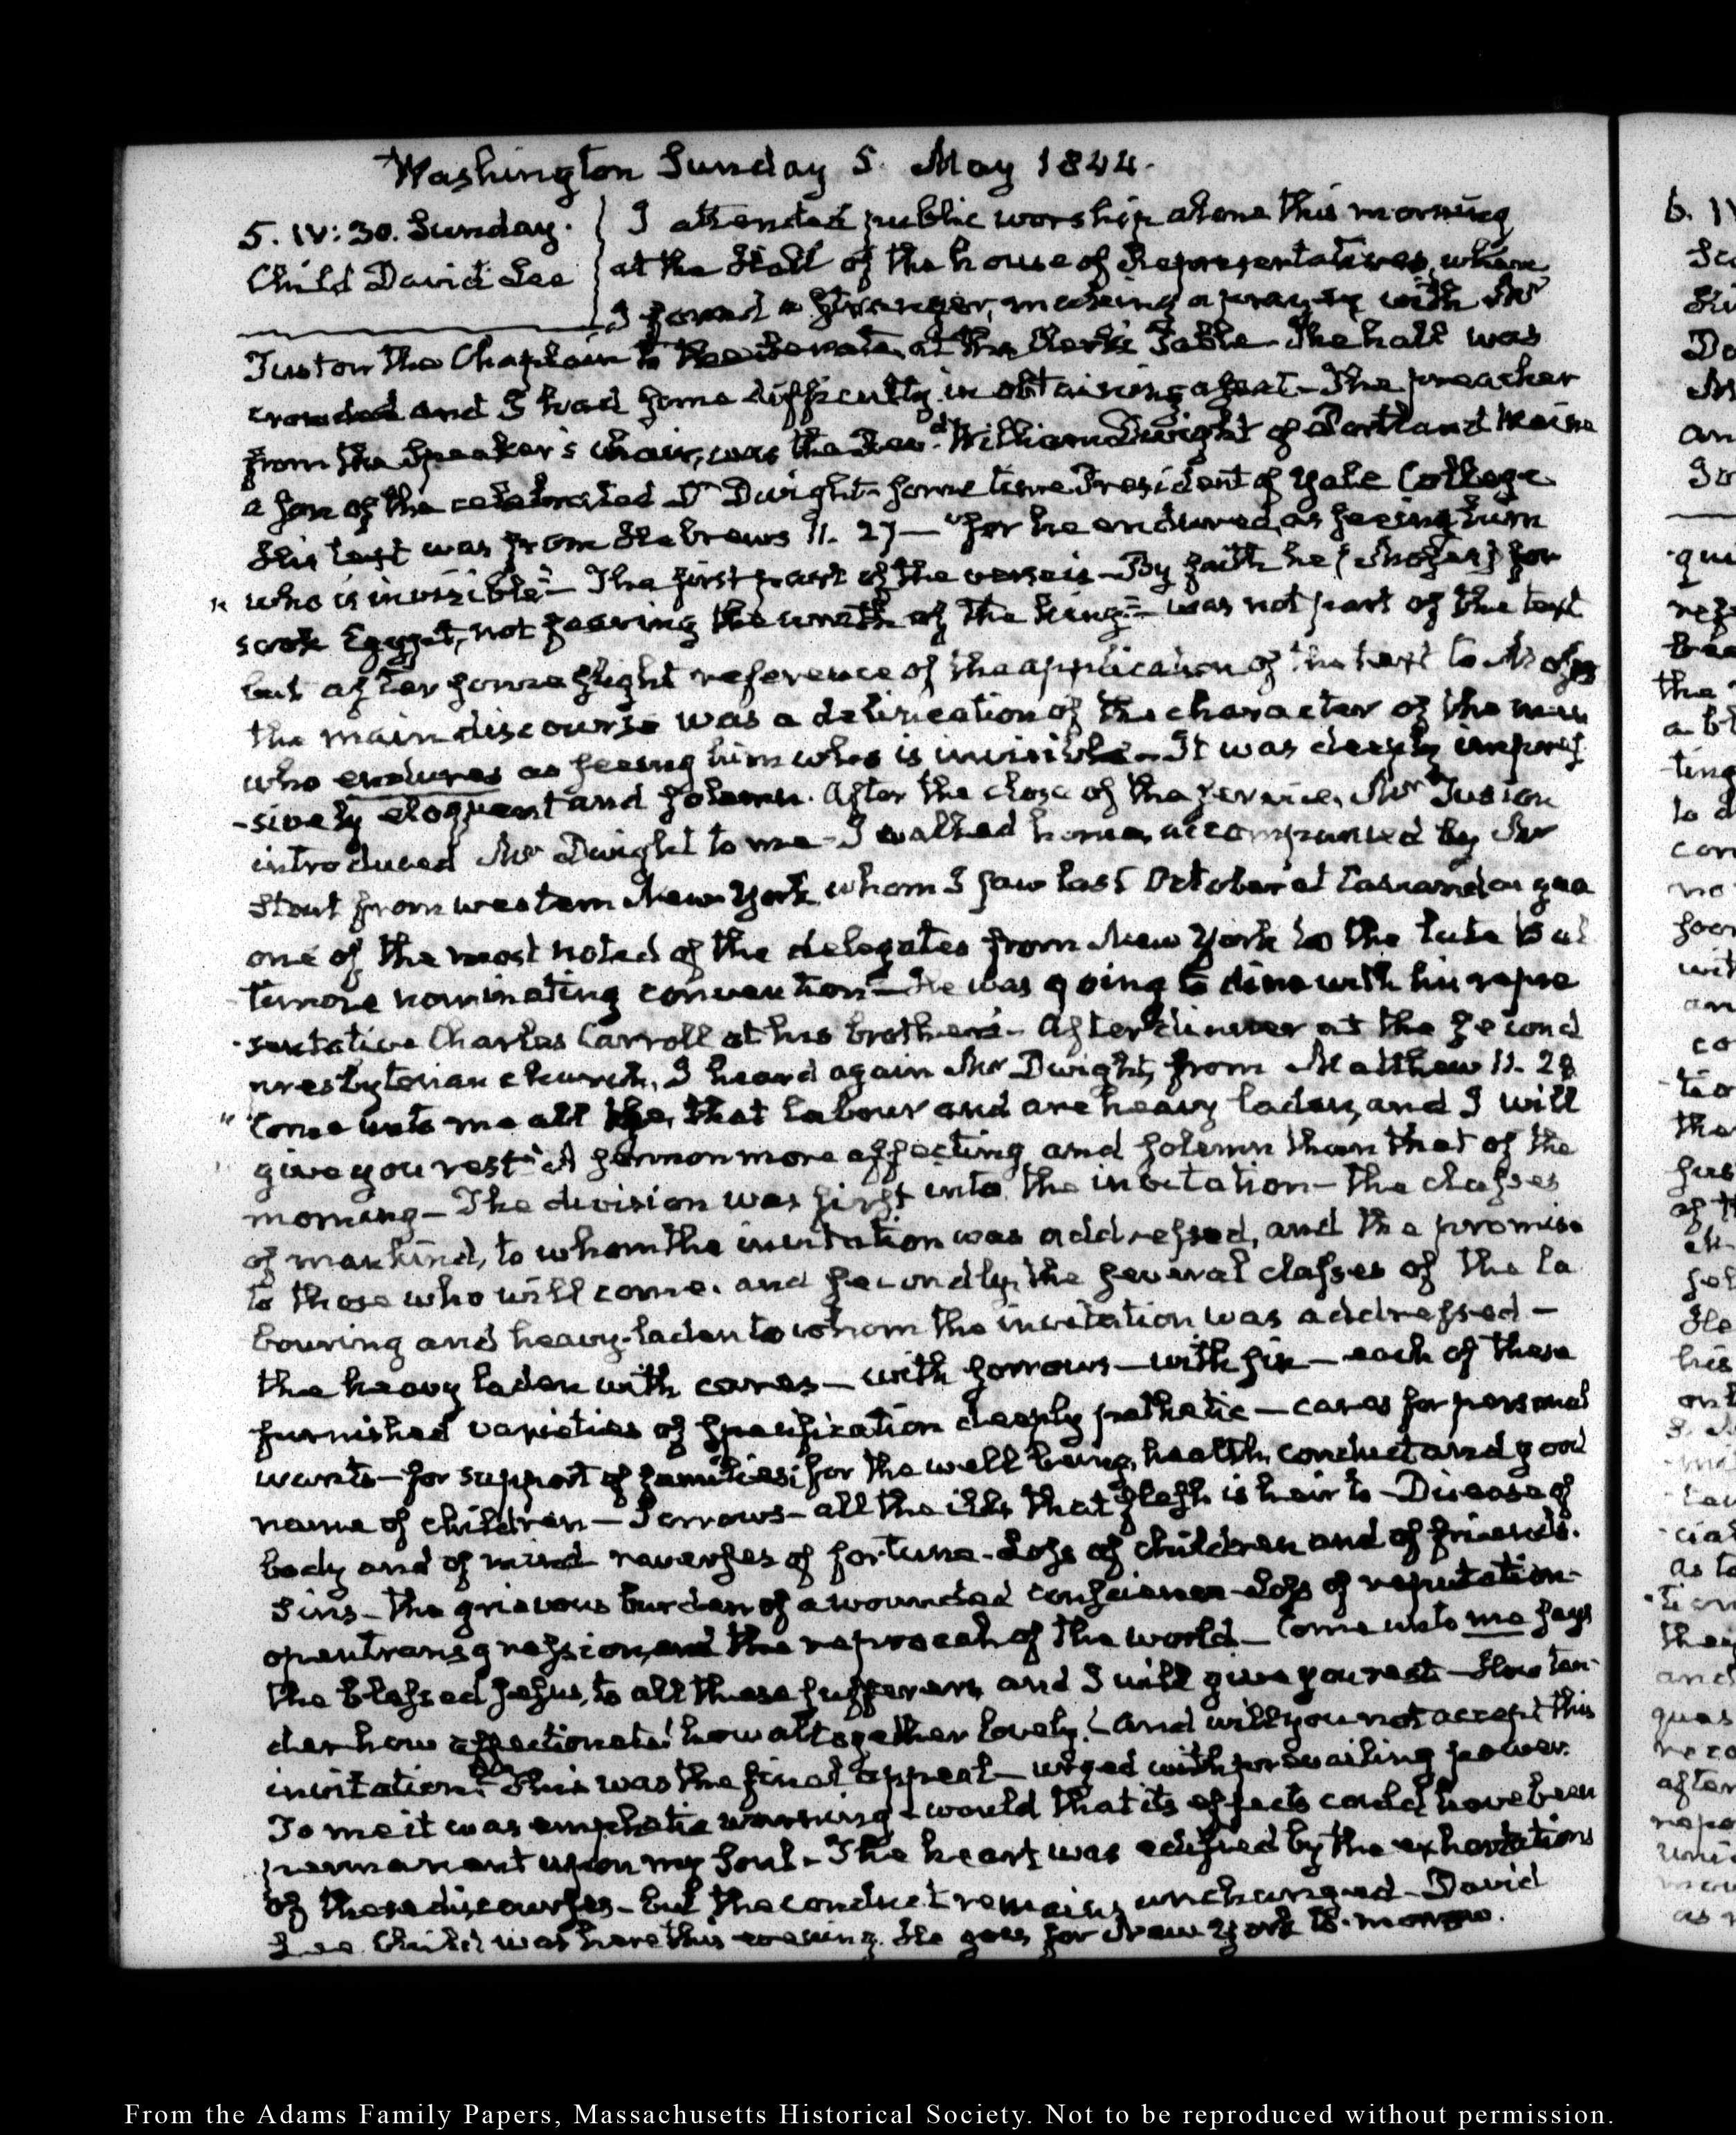 Washington Sunday 5. May 1844.
5. IV: 30. Sunday.
Child David Lee
I attended public worship alone this morning
at the Hall of the house of Representatives, where
I found a stranger, making a prayer with Mr
Tuston the Chaplain to the Senate, at the Clerk's Table. The hall was
crowded and I had some difficulty in obtaining a seat - The preacher
from the Speaker's chair, was the Revd. William Dwight of Portland Maine
a son of the celebrated Dr Dwight some time President of Yale College
His text was from Hebrews 11. 27 — "for he endured, as seeing him
" who is invisible" - The first part of the verse is - By faith he (Moses) for
sook Egypt, not fearing the wrath of the king" - was not part of the text
but after some slight reference of the application of the text to Moses
the main discourse was a delineation of the character of the man
who endures as seeing him who is invisible - It was deeply impres
-sively eloquent and solemn. After the close of the service, Mr Tuston
introduced Mr Dwight to me - I walked home, accompanied by Mr
Stout from western New-York, whom I saw last October at Canandaigua
one of the most noted of the delegates from New York to the late Bal
-timore nominating convention - He was going to dine with his repre
-sentative Charles Carroll at his brother's - After dinner at the second
presbyterian church, I heard again Mr Dwight, from Matthew 11. 28
" Come unto me all ye, that labour and are heavy laden, and I will
give you rest" A sermon more affecting and solemn than that of the
morning - The division was first into the invitation - the classes
of mankind, to whom the invitation was addressed, and the promise
to those who will come. and secondly, the several classes of the la
bouring and heavy-laden to whom the invitation was addressed —
the heavy laden with cares — with sorrows — with sin — each of these
furnished varieties of specification deeply pathetic — cares for personal
wants — for support of families; for the well being, health, conduct and good
name of children — Sorrows - all the ills that flesh is heir to - Disease of
body and of mind reverses of fortune - Loss of children and of friends.
Sins - the grievous burden of a wounded conscience - Loss of reputation -
open transgression, and the reproach of the world - Come unto me says
the blessed Jesus, to all these sufferers, and I will give you rest - How ten-
der how affectionate! how altogether lovely! - and will you not accept this
invitation? This was the final appeal - urged with prevailing power.
To me it was emphatic warning - would that its effects could have been
permanent upon my Soul - The heart was edified by the exhortations
of these discourses - but the conduct remains unchanged - David
Lee Child was here this evening. He goes for New York to-morrow.
From the Adams Family Papers, Massachusetts Historical Society. Not to be reproduced without permission.